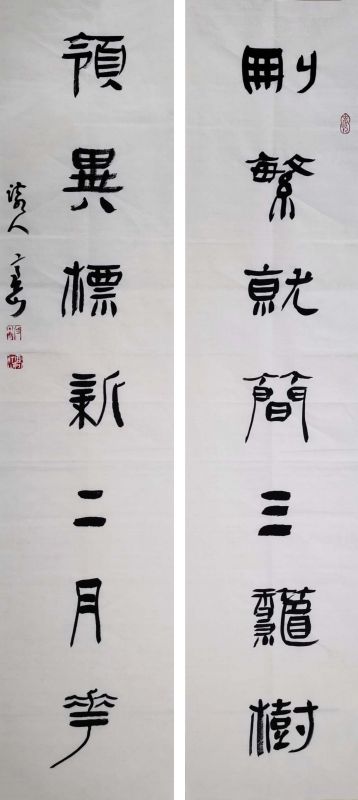 刪繁就簡三龝樹
領異標新二月花